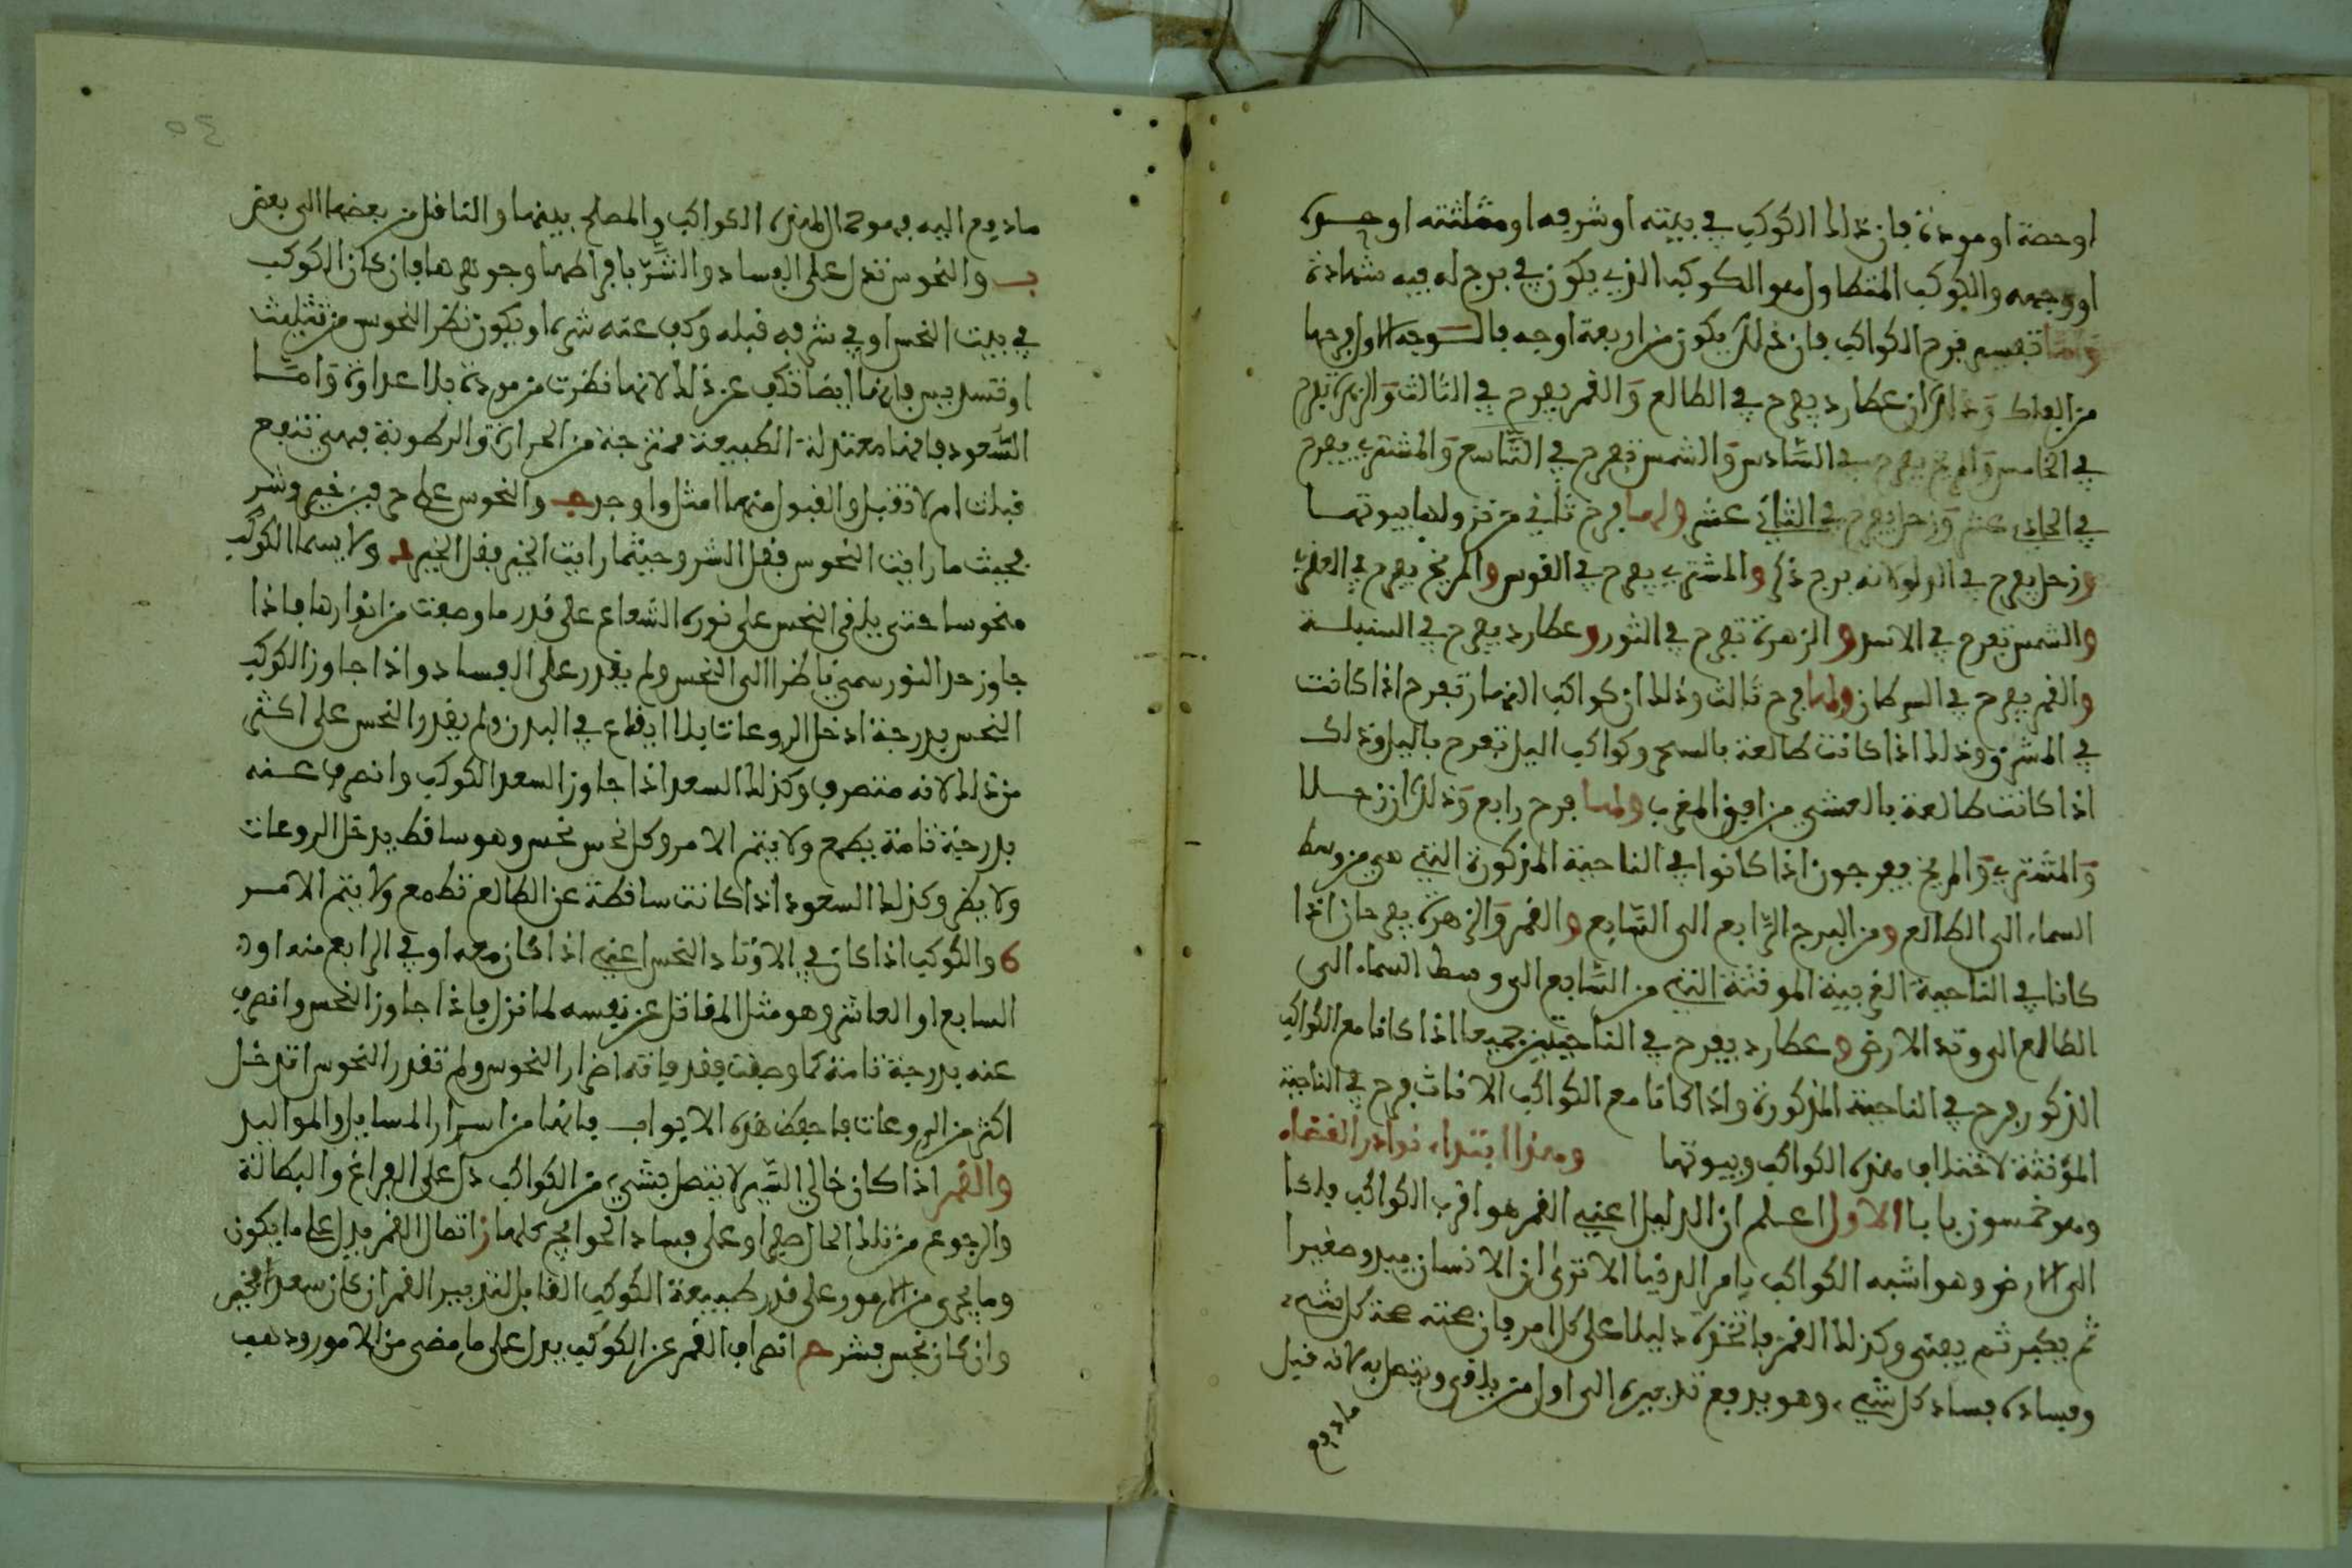 او حصة او مودة فان ذلك الكوكب في بيته او شرفه او مثلثته او حده
او وجهه والكوكب المتطاول هو الكوكب الذي يكون في برج له فيه شهادة
واما تفسير فرح الكواكب فان ذلك يكون من اربعة اوجه فالوجه الاول فرحها
من الفلك وذلك ان عطارد يفرح في الطالع والقمر يفرح في الثالث والزهرة تفرح
في الخامس والمريخ يفرح في السادس والشمس تفرح في التاسع والمشتري يفرح
في الحادي عشر وزحل يفرح في الثاني عشر ولها فرح ثاني من نزولها بيوتها
وزحل يفرح في الدلو لانه برج ذكر والمشتري يفرح في القوس والمريخ يفرح في العقرب
والشمس تفرح في الاسد والزهرة تفرح في الثور وعطارد يفرح في السنبلة
والقمر يفرح في السرطان ولها فرح ثالث وذلك ان كواكب النهار تفرح اذا كانت
في المشرق وذلك اذا كانت طالعة بالسحر وكواكب اليل تفرح باليل وذلك
اذا كانت طالعة بالعشي من افق المغرب ولها فرح رابع وذلك ان زحلا
والمشتري والمريخ يفرحون اذا كانوا في الناحية المذكورة التي هي من وسط
السماء الى الطالع ومن البرج الرابع الى السابع والقمر والزهرة يفرحان اذا
كانا في الناحية الغربية المونثة التي من السابع الى وسط السماء الى
الطالع الى وتد الارض وعطارد يفرح في الناحيتين جميعا اذا كانا مع الكواكب
الذكور فرح في الناحية المذكورة واذا كانا مع الكواكب الاناث فرح في الناحية
المؤنثة لاختلاف هذه الكواكب وبيوتها وهذا ابتداء نوادر القضاء
وهو خمسون بابا الاول اعلم ان الدليل اعني القمر هو اقرب الكواكب فلكا
الى الارض وهو اشبه الكواكب بامر الدنيا الا ترى ان الانسان يبدو صغيرا
ثم يكبر ثم يفنى وكذلك القمر فاتخذه دليلا على كل امر فان صحته صحة كل شيء
وفساده فساد كل شيء وهو يدفع تدبيره الى اول من يلقى ويتصل به لانه قبل
ما دفع
ما دفع اليه فهو المهزه الكواكب والمصلح بينها والناقل من بعضها الى بعض
ب والنحوس تدل على الفساد والشر بافراطها وجوهرها فان كان الكوكب
في بيت النحس او في شرفه قبله وكف عنه شره او يكون نظر النحوس من تثليث
او تسديس فانها ايضا تكف عن ذلك لانها نظرت من مودة بلا عداوة واما
السعود فانها معتدلة الطبيعة ممتزجة من الحرارة والرطوبة فهي تنفع
قبلت ام لا تقبل والقبول منها امثل واوجد ج والنحوس على حرفين خير وشر
فحيث ما رايت النحوس فقل الشر وحيثما رايت الخير فقل الخير د ولا يسما الكوكب
منحوسا حتى يلقي النحس على نوره الشعاع على قدر ما وصفت من انوارها فاذا
جاوز حد النور سمي ناظرا الى النحس ولم يقدر على الفساد واذا جاوز الكوكب
النحس بدرجة ادخل الروعات بلا ايقاع في البدن ولم يقدر النحس على اكثر
من ذلك لانه منصرف وكذلك السعد اذا جاوز السعد الكوكب وانصرف عنه
بدرجة تامة يطمع ولا يتم الامر وكل نحس نحس وهو ساقط يدخل الروعات
ولا يضر وكذلك السعود اذا كانت ساقطة عن الطالع تطمع ولا يتم الامر
6 والكوكب اذا كان في الاوتاد النحس اعني اذا كان معه او في الرابع منه او في
السابع او العاشر وهو مثل المقاتل عن نفسه لما نزل فاذا جاوز النحس وانصرف
عنه بدرجة تامة كما وصفت فقد فاته اضرار النحوس ولم تقدر النحوس ان تدخل
اكثر من الروعات فاحفظ هذه الابواب فانها من اسرار المسايل والمواليد
والقمر اذا كان خالي السير لا يتصل بشيء من الكواكب دل على الفراغ والبطالة
والرجوع من تلك الحال صفرا وعلى فساد الحوايج كلها ز اتصال القمر يدل على ما يكون
وما يجري من الامور على قدر طبيعة الكوكب القابل لتدبير القمر ان كان سعدا فخير
وان كان نحس فشر ح انصراف القمر عن الكوكب يدل على ما مضى من الامور وذهب